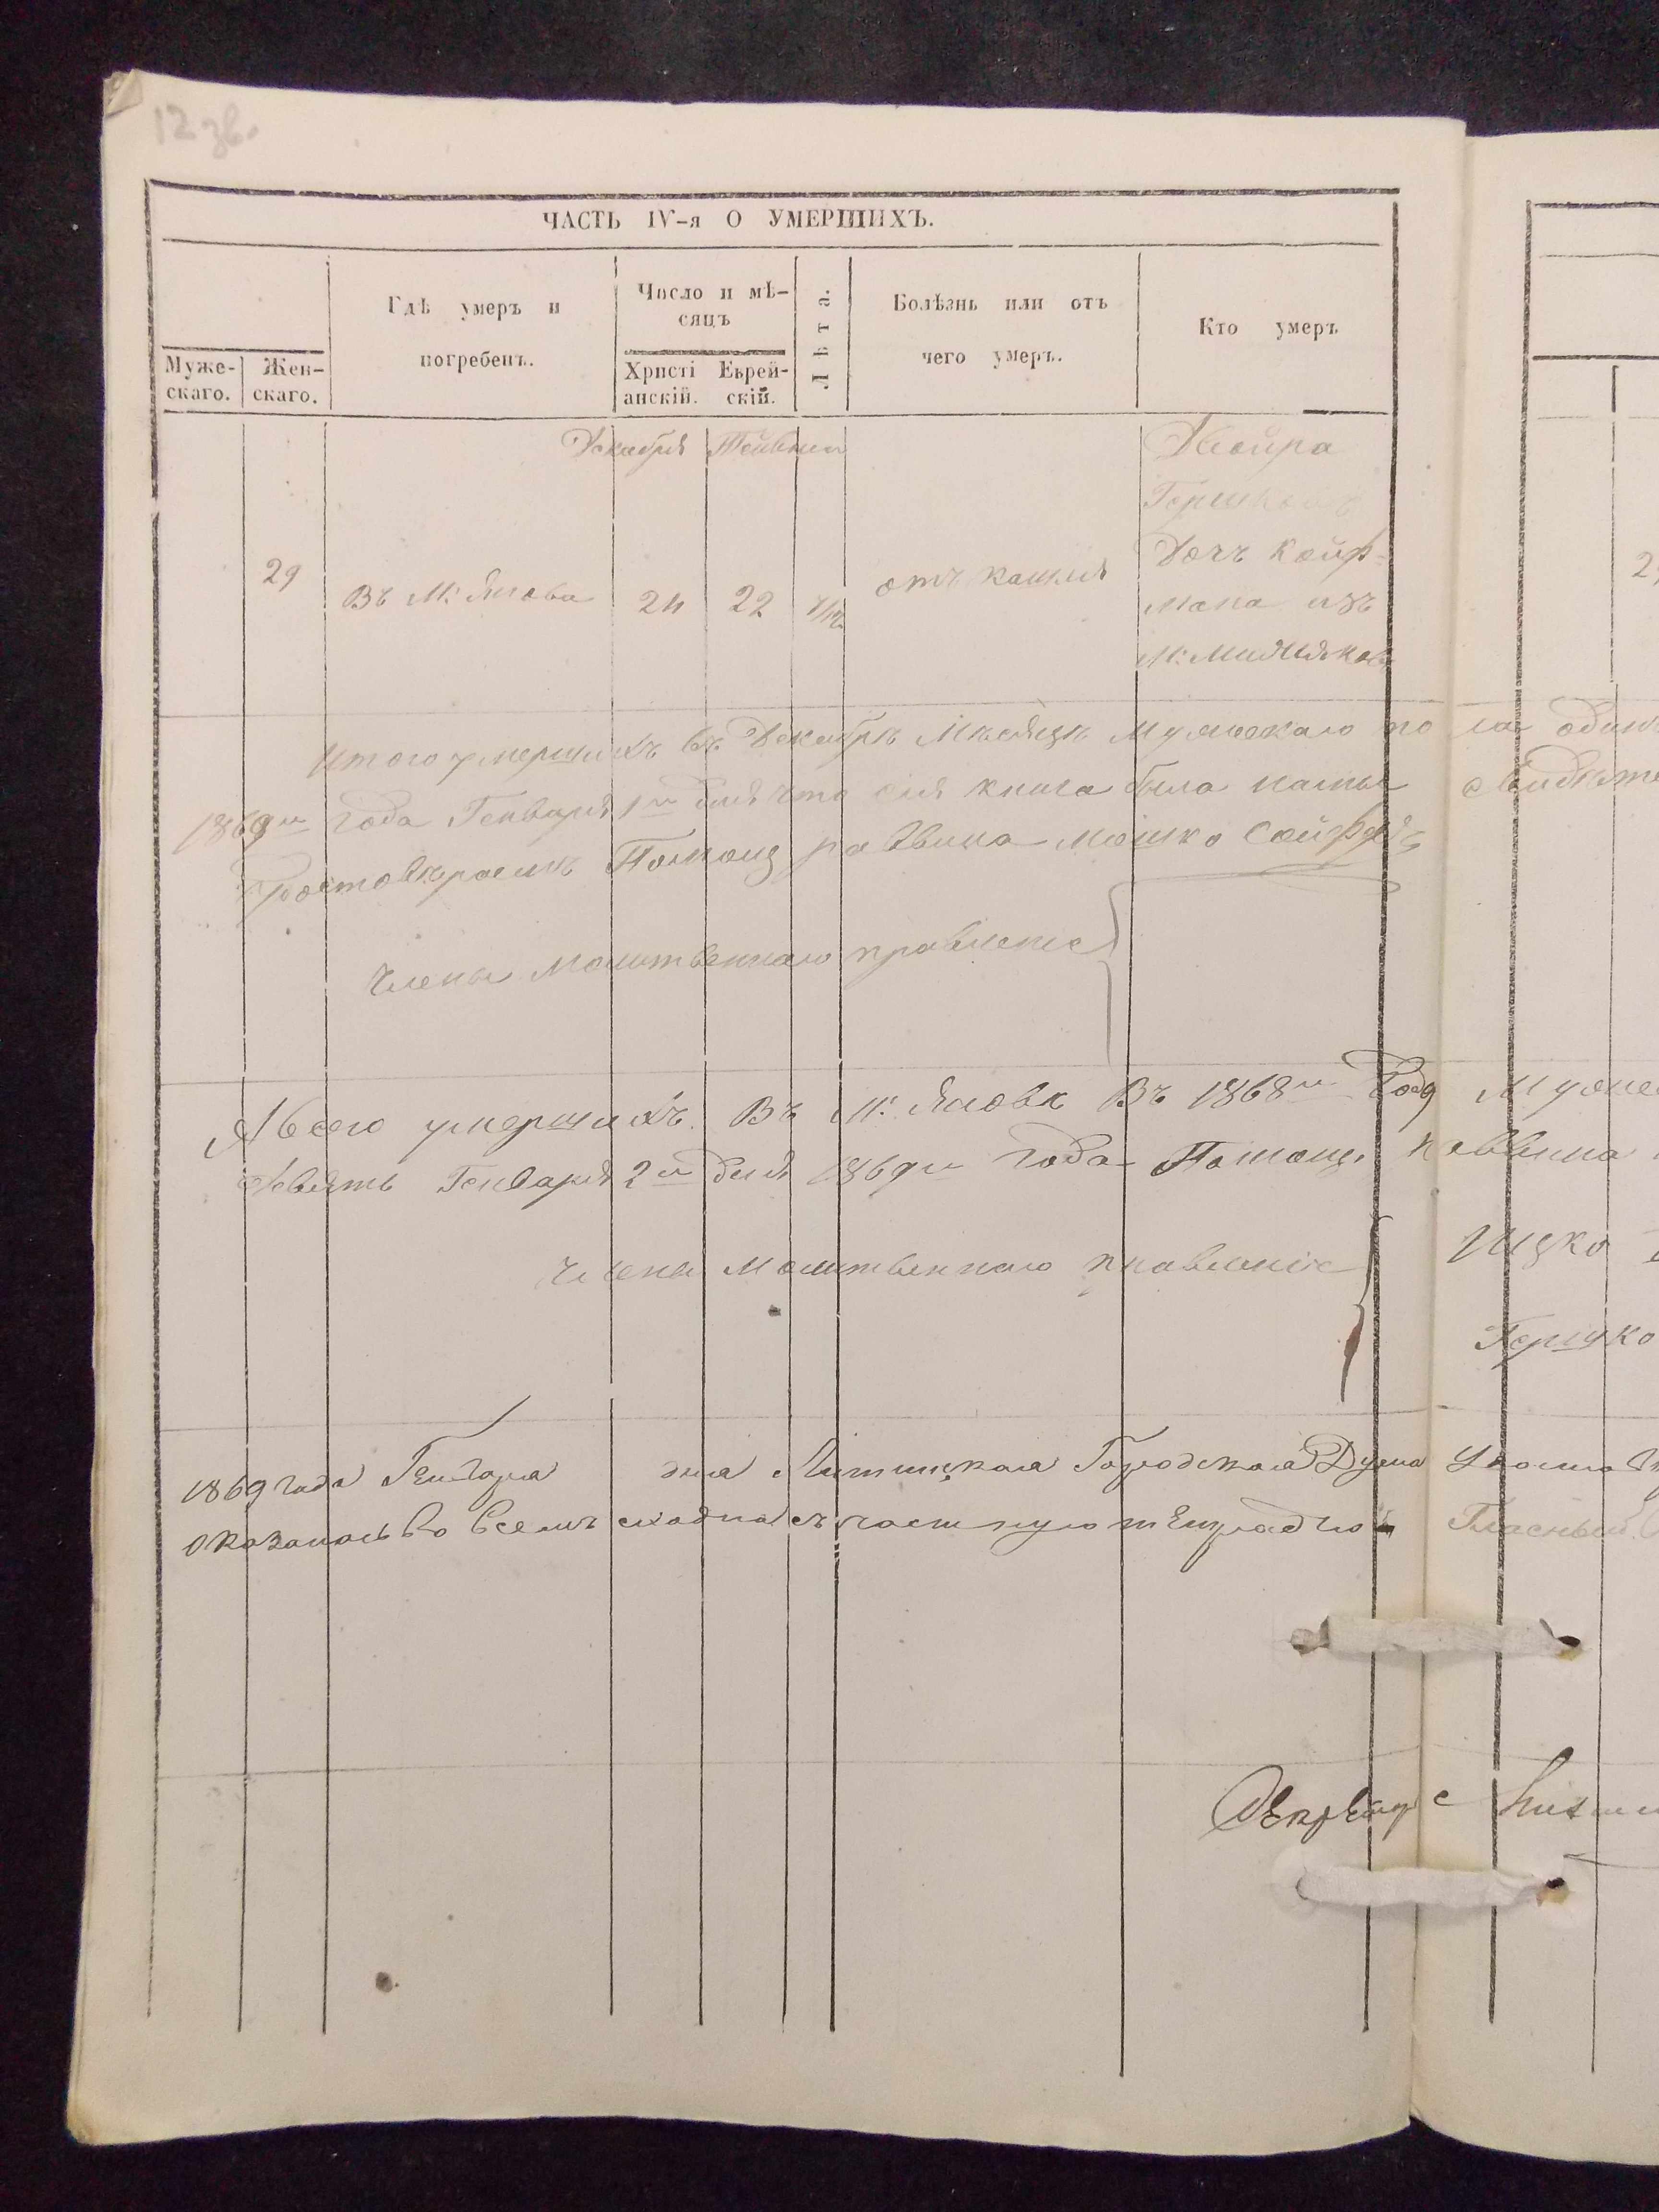 12 зв.
ЧАСТЬ IV-я О УМЕРШИХЪ.
Муже-
скаго.
Жен-
скаго.
Гдѣ умеръ и
погребенъ.
Число и мѣ-
сяцъ
Христі
анскій.
Еврей-
скій.
Лѣта.
Болѣзнь или отъ
чего умеръ.
Кто умеръ
Декабря
29
Въ М: Янова
24
22
отъ кашля
Двойра
Гершкова
Дочъ Койф-
мана изъ
Итого умершихъ въ Декабрѣ Мѣсяцѣ Мужескаго пола одинъ
1869го года Генваря 1го дня что сія книга была нами
Помощ раввина Мошко
Члены Молитвеннаго правленіе
А всего умершихъ Въ М: Яновѣ Въ 1868м Году
девять Генваря 2го дня 1869го года Помощ раввина
Члены Молитвеннаго правленіе
Ицко
Гершко
1869 года Генваря дня Литинская Городская Дума
оказалось во всемъ сходна съ тетрадью Гласный